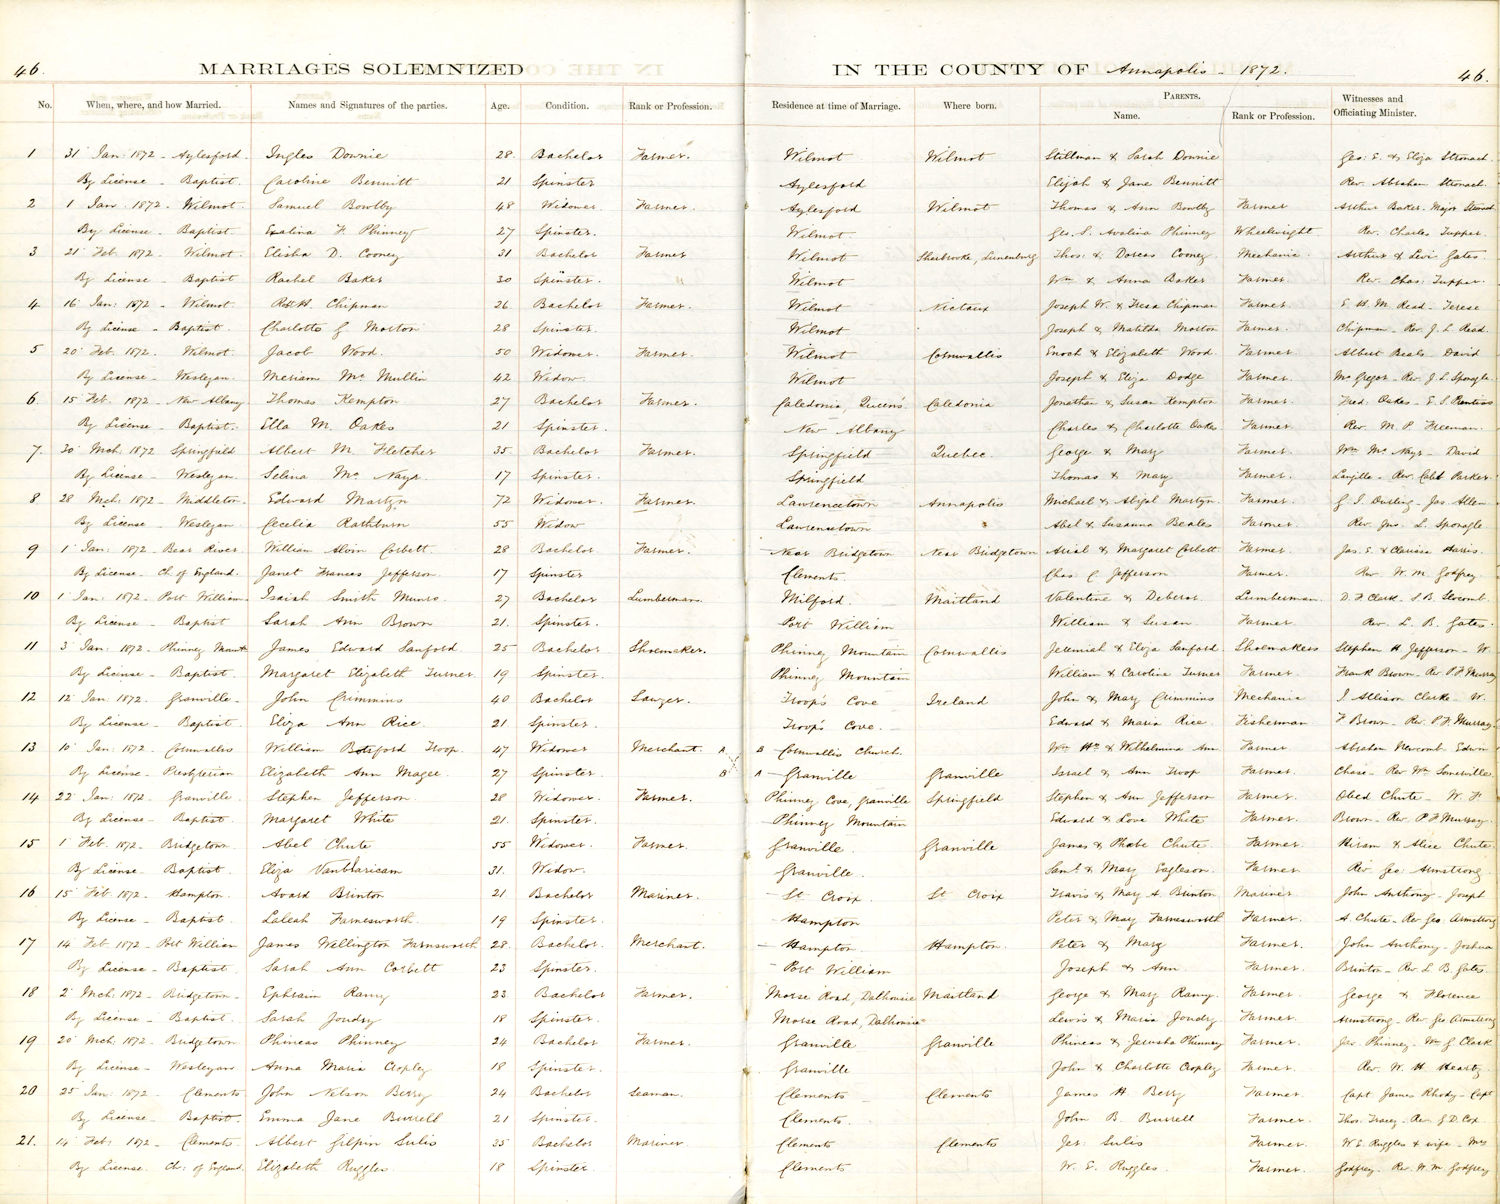 46. MARRIAGES SOLEMNIZED IN THE COUNTY OF Annapolis - 1872. 46.
No. When, where, and how Married. Names and Signatures of the parties. Age. Condition. Rank or Profession. Residence at time of Marriage. Where born. PARENTS. Name. Rank or Profession. Witnesses and Officiating Minister.
1 31 Jan: 1872 - Aylesford. Ingles Downie 28 Bachelor Farmer. Wilmot Wilmot Stillman & Sarah Downie Geo: E. & Eliza Stronach.
By License - Baptist. Caroline Bennitt 21 Spinster Aylesford Elijah & Jane Bennitt Rev. Abraham Stronach.
2 1 Jan. 1872 - Wilmot. Samuel Bowlby 48 Widower Farmer. Aylesford Wilmot Thomas & Ann Bowlby Farmer Arthur Baker - Major
By License - Baptist F. Phinney 27 Spinster. Wilmot. Geo. S. Avalina Phinney Wheelwright Rev. Charles Tupper.
3 21 Feb. 1872. Wilmot. Elisha D. Cooney 31 Bachelor Farmer Wilmot Sherbrooke, Lunenburg Thos: & Dorcas Cooney. Mechanic Arthur & Levi Gates.
By License - Baptist Rachel Baker 30 Spinster. Wilmot Wm & Anna Baker Farmer. Rev. Chas: Tupper.
4 16 Jan: 1872 - Wilmot Robt H. Chipman 26 Bachelor Farmer. Wilmot Nictaux Joseph W. & Chipman Farmer. E. H. M. Read - Terese
By License - Baptist. Charlotte G Morton 28 Spinster. Wilmot Joseph & Matilda Morton Farmer. Chipman - Rev. J. L. Read.
5 20 Feb. 1872. Wilmot. Jacob Wood. 50 Widower. Farmer. Wilmot Cornwallis Enoch & Elizabeth Wood. Farmer. Albert Beals - David
By License - Wesleyan. Meriam Mc Mullin 42 Widow. Wilmot Joseph & Eliza Dodge Farmer. McGregor - Rev. J. L. Sponagle.
6. 15 Feb. 1872 - New Albany Thomas Kempton 27 Bachelor Farmer. Caledonia, Queen's Caledonia Jonathan & Susan Kempton Farmer. Fred: Oakes - E. S. Prentiss
By License - Baptist. Ella M. Oakes 21 Spinster. New Albany Charles & Charlotte Oakes. Farmer. Rev. M. P. Freeman.
7. 30 Mch. 1872 Springfield Albert M. Fletcher 35 Bachelor Farmer. Springfield Quebec. George & Mary Farmer. Wm Mc Nayr - David
By License - Wesleyan. Selina Mc Nayr 17 Spinster. Springfield Thomas & Mary Farmer. Langille - Rev. Caleb Parker.
8 28 Mch. 1872 - Middleton. Edward Martyn 72 Widower. Farmer Lawrencetown Annapolis Michael & Abigal Martyn. Farmer. G. I. Durling - Jas. Allen
By License - Wesleyan Cecelia Rathburn 55 Widow Lawrencetown Abel & Susanna Beales Farmer. Rev. Jno. L. Sponagle
9 1 Jan: 1872 - Bear River. William Alvin Corbett 28 Bachelor Farmer. Near Bridgetown Near Bridgetown Arial & Margaret Corbett Farmer. Jas. E. & Clarissa Harris.
By License - Ch. of England. Janet Frances Jefferson 17 Spinster Clements. Chas. C. Jefferson Farmer. Rev. W. M. Godfrey.
10 1 Jan: 1872 - Port William. Isaiah Smith Munro. 27 Bachelor Lumberman. Milford. Maitland Valentine & Deborah. Lumberman. D. F. Clark - S. B. Slocomb.
By License - Baptist Sarah Ann Brown 21. Spinster. Port William William & Susan. Farmer. Rev. L. B. Gates.
11 3 Jan: 1872 - Phinney Mount James Edward Sanford 25 Bachelor Shoemaker. Phinney Mountain Cornwallis Jeremiah & Eliza Sanford. Shoemaker Stephen H Jefferson - W.
By License - Baptist. Margaret Elizabeth Turner 19 Spinster. Phinney Mountain William & Caroline Turner Farmer. Frank Brown - Rev P. F. Murray
12 12 Jan. 1872. Granville - John Crimmins 40 Bachelor Sawyer. Troop's Cove Ireland John & Mary Crimmins Mechanic J. Allison Clarke - W.
By License - Baptist. Eliza Ann Rice. 21 Spinster. Troop's Cove. Edward & Maria Rice. Fisherman F Brown - Rev. P. F. Murray.
13 10 Jan: 1872 - Cornwallis William Botsford Troop. 47 Widower Merchant. A B Cornwallis Church. Wm Hy & Wilhelmina Ann. Farmer Abraham Newcomb Edwin
By License - Presbyterian Elizabeth Ann Magee. 27 Spinster. B A Granville Granville Israel & Ann Troop Farmer. Chase - Rev Wm Somerville.
14 22 Jan: 1872. Granville. Stephen Jefferson 28 Widower. Farmer. Phinney Cove, Granville Springfield Stephen & Ann Jefferson Farmer. Obed Chute - W. F.
By License - Baptist. Margaret White 21. Spinster. Phinney Mountain Edward & Lova White Farmer. Brown - Rev. P F Murray.
15 1 Feb. 1872. Bridgetown Abel Chute 55 Widower. Farmer. Granville. Granville James & Phebe Chute Farmer. Hiram & Alice Chute
By License - Baptist. Eliza VanBlaricam 31. Widow. Granville. Saml & Mary Eagleson. Farmer Rev. Geo. Armstrong.
16 15 Feb 1872 - Hampton. Avard Brinton 21 Bachelor Mariner. St Croix. St Croix Travis & Mary A. Brinton. Mariner John Anthony - Joseph
By License - Baptist. Laleah Farnesworth. 19 Spinster. Hampton Peter & Mary Farnesworth Farmer. A. Chute - Rev Geo. Armstrong
17 14 Feb 1872 - Port William James Wellington Farnsworth 28. Bachelor. Merchant. Hampton. Hampton. Peter & Mary Farmer. John Anthony - Joshua
By License - Baptist. Sarah Ann Corbett 23 Spinster. Port William Joseph & Ann. Farmer. Brinton - Rev. L B. Gates.
18 2 Mch. 1872 - Bridgetown - Ephraim Ramy 23 Bachelor Farmer. Morse Road, Dalhousie Maitland George & Mary Ramy. Farmer. George & Florence
By License - Baptist. Sarah Joudry 18 Spinster. Morse Road, Dalhousie Lewis & Maria Joudry. Farmer. Armstrong - Rev Geo Armstrong
19 20 Mch. 1872 - Bridgetown Phineas Phinney 24 Bachelor Farmer. Granville Granville Phineas & Jerusha Phinney Farmer. Jas. Phinney - Wm G Clark
By License - Wesleyan Anna Maria Cropley 18 Spinster. Granville John & Charlotte Cropley Farmer. Rev. W. H. Heartz.
20 25 Jan: 1872. Clements John Nelson Berry 24 Bachelor Seaman. Clements Clements James H. Berry Farmer. Capt James Rhody - Capt
By License - Baptist. Emma Jane Burrell 21 Spinster. Clements. John B. Burrell Farmer. Thos. Tracey - Rev. J. D. Cox.
21. 14 Feb: 1872 - Clements. Albert Gilpin Sulis 35 Bachelor Mariner Clements Clements Jer: Sulis Farmer. W. E. Ruggles & wife - Mrs
By License. Ch: of England. Elizabeth Ruggles. 18 Spinster. Clements W. E. Ruggles. Farmer. Godfrey - Rev. W. M. Godfrey